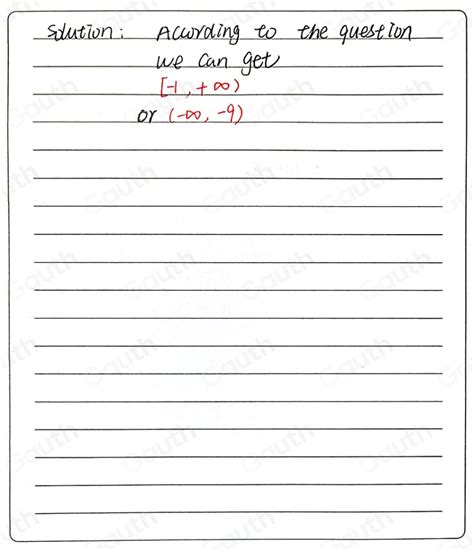 Solution: According to the question
we can get
[-1, +∞)
or (-∞, -9)